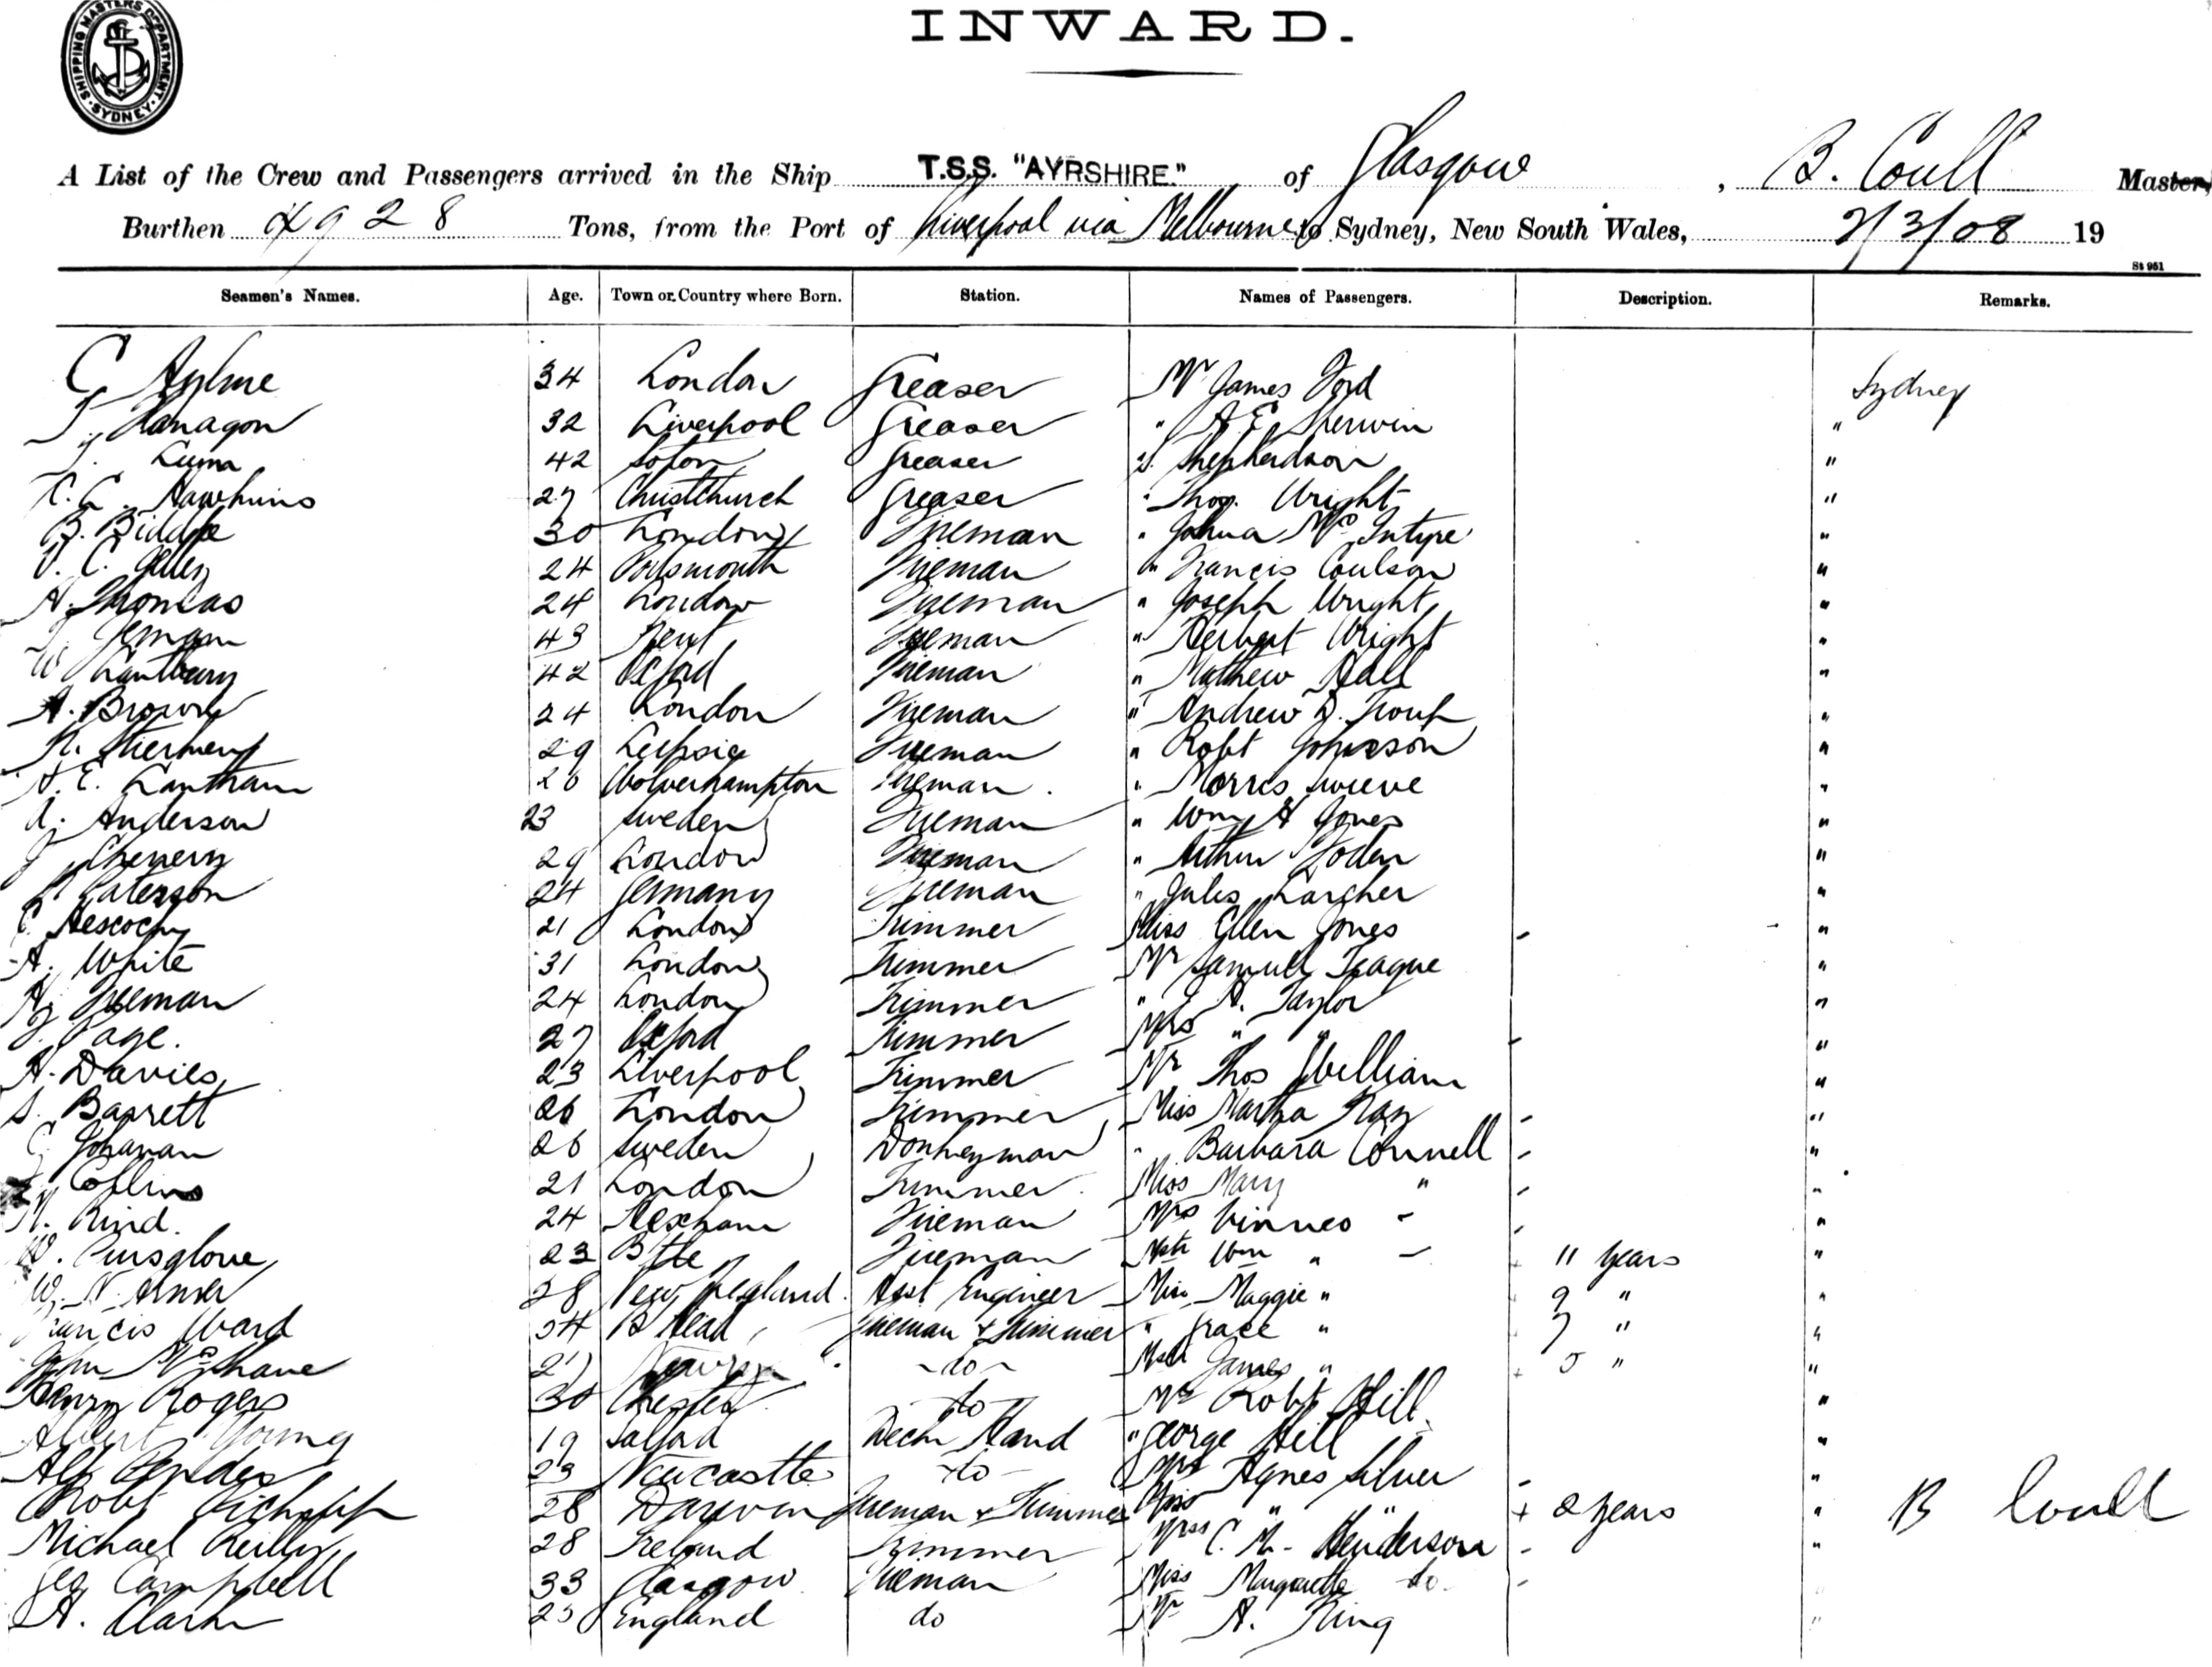 SHIPPING MASTERS DEPARTMENT · SYDNEY
INWARD.
A List of the Crew and Passengers arrived in the Ship T.S.S. "AYRSHIRE." of Glasgow, B. Coull Master,
Burthen 4928 Tons, from the Port of Liverpool via Melbourne to Sydney, New South Wales, 2/3/08 19
St 961
Seamen's Names. Age. Town or Country where Born. Station. Names of Passengers. Description. Remarks.
C 34 London Greaser Mr James Ford Sydney
32 Liverpool Greaser " A E Sherwin "
42 Soton Greaser Shepherdson "
Hawkins 27 Christchurch Greaser " Thos. Wright "
B. Biddle 30 London Fireman " Joshua McIntyre "
V. C. 24 Portsmouth Fireman " Francis Coulson "
A. Thomas 24 London Fireman " Joseph Wright "
43 Kent Fireman " Herbert Wright "
W 42 Oxford Fireman " Mathew Hall "
A. Brown 24 London Fireman " Andrew D. "
29 Leipsic Fireman " Robt Johnson "
A. E. Lantham 26 Wolverhampton Fireman " Morris "
A. Anderson 23 Sweden Fireman " Wm H Jones "
29 London Fireman " Arthur Yoden "
Paterson 24 Germany Fireman " Jules Karcher "
21 London Trimmer Miss Ellen Jones "
A. White 31 London Trimmer Mr Samuel Teague "
Freeman 24 London Trimmer " A. Taylor "
Page. 27 Oxford Trimmer Mrs " " "
A. Davies 23 Liverpool Trimmer Mr Thos William "
S. Barrett 26 London Trimmer Miss Martha Ray "
Johanan 26 Sweden Donkeyman " Barbara Connell "
Collins 21 London Trimmer Miss Mary " "
Rind. 24 Hexham Fireman Mrs "
Pursglove 23 Btle Fireman Mstr Wm " 11 years "
W. N. 28 New England. Asst Engineer Miss Maggie " 9 " "
Francis Ward 34 B Head Fireman & Trimmer " Grace " 7 " "
John McShane 27 do Mstr James " 5 " "
Henry Rogers 30 Chester do Mr Robt Hill "
Albert Young 19 Salford Deck Hand " George Hill "
Alf 23 Newcastle do Mrs Agnes Silver "
Robt 28 Darwen Fireman & Trimmer Miss " " 2 years " B Coull
Michael Reilly 28 Ireland Trimmer Mrs C. M. Henderson "
Geo Campbell 33 Glasgow Fireman Miss do.
A. Clark England do Mr A. King "